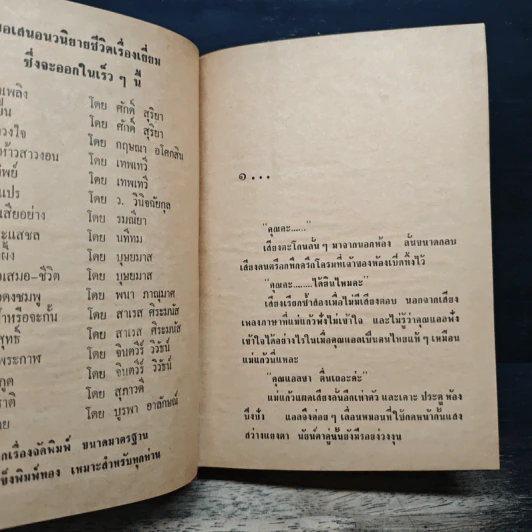 อเสนอนวนิยายชีวิตเรื่องเยี่ยม
ซึ่งจะออกในเร็ว ๆ นี้
นเพลิง โดย ศักดิ์ สุริยา
โดย ศักดิ์ สุริยา
วงใจ โดย กฤษณา อโศกสิน
ห้าวสาวงอน โดย เทพเทวี
โดย เทพเทวี
แปร โดย ว. วินิจฉัยกุล
เสียอย่าง โดย รมณียา
ะแสชล โดย นทีทม
โดย บุษยมาส
เสมอ-ชีวิต โดย บุษยมาส
งดงชมพู โดย พนา ภาณุมาศ
ำหรือจะกั้น โดย สาเรส ศิระมนัส
โดย สาเรส ศิระมนัส
พระกาฬ โดย จินตวีร์ วิวัธน์
ฎูต โดย จินตวีร์ วิวัธน์
าติ โดย สุภาวดี
โดย บูรพา อาลักษณ์
กเรื่องจัดพิมพ์ ขนาดมาตรฐาน
ข็งพิมพ์ทอง เหมาะสำหรับทุกท่าน
๑...
"คุณคะ....."
เสียงตะโกนลั่น ๆ มาจากนอกห้อง ลั่นขนาดกลบ
เสียงดนตรีอึกทึกครึกโครมที่เจ้าของห้องเปิดทิ้งไว้
"คุณคะ........ได้ยินไหมคะ"
เสียงเรียกซ้ำสองเมื่อไม่มีเสียงตอบ นอกจากเสียง
เพลงภาษาที่แม่แก้วฟังไม่เข้าใจ และไม่รู้ว่าคุณแอลฟัง
เข้าใจได้อย่างไรในเมื่อคุณแอลเป็นคนไทยแท้ ๆ เหมือน
แม่แก้วนี่แหละ
"คุณแอลขา ตื่นเถอะค่ะ"
แม่แก้วแผดเสียงลั่นอีกเท่าตัว และเคาะ ประตู ห้อง
ปังปัง แอลจึงค่อย ๆ เลื่อนหมอนที่ใช้กดหน้ากันแสง
สว่างแยงตา นัยน์ตาคู่นั้นยังมีรอยง่วงงุน